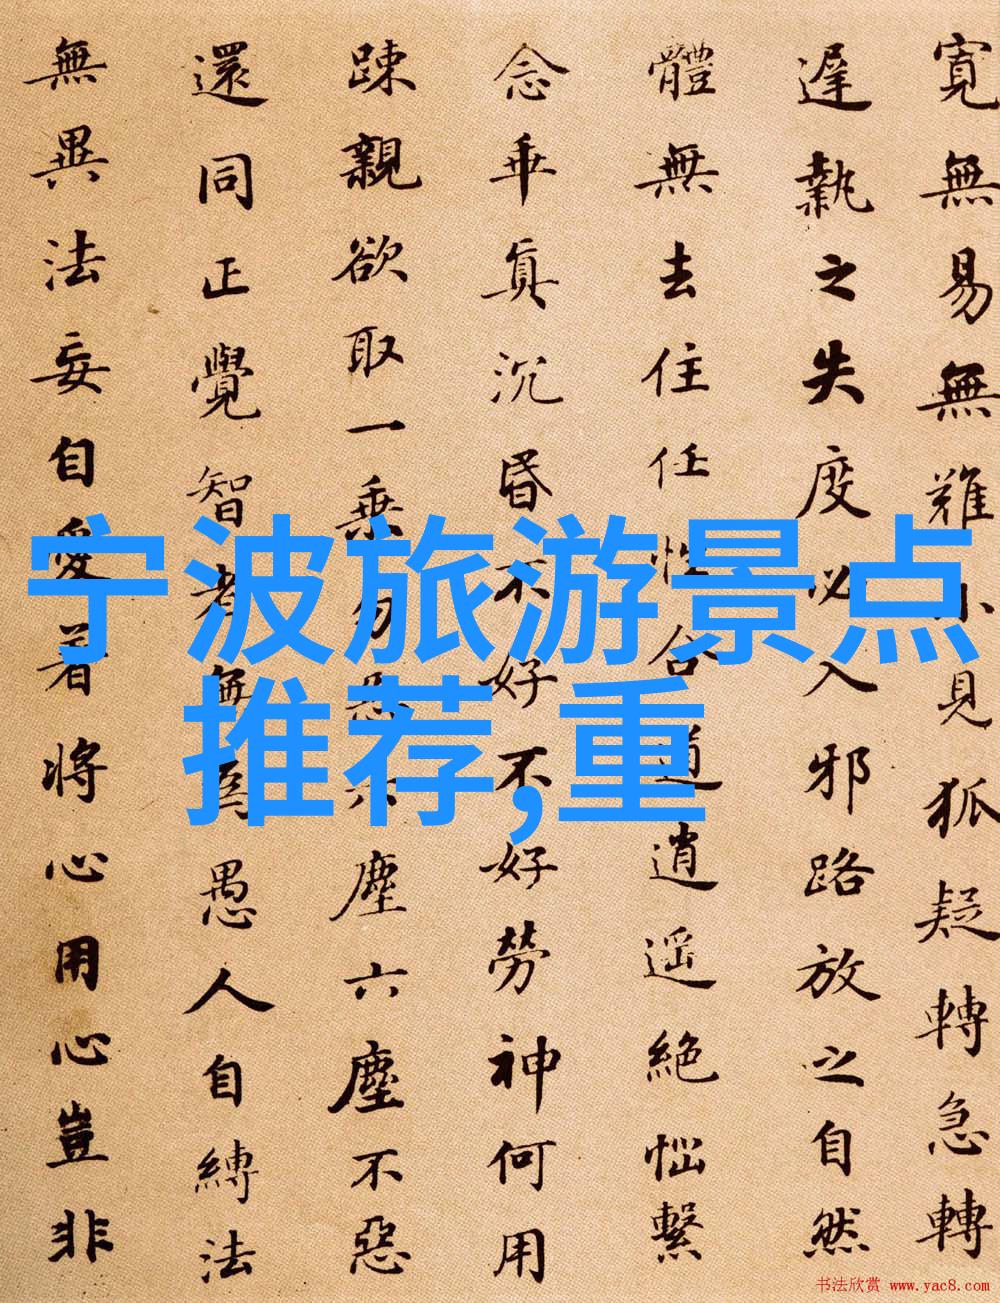 寬無易無難小見狐疑轉急轉
遲執之失度必入邪路放之自然
體無去住任性合道逍遥絕惱繫
念乖真沉昏不好不好勞神何用
踈親欲取一乘勿惡六塵六塵不惡
還同正覺智者無為愚人自縛法
無異法妄自愛著將心用心豈非
宁波旅游景点
推荐,重
书法欣赏 www.yac8.com